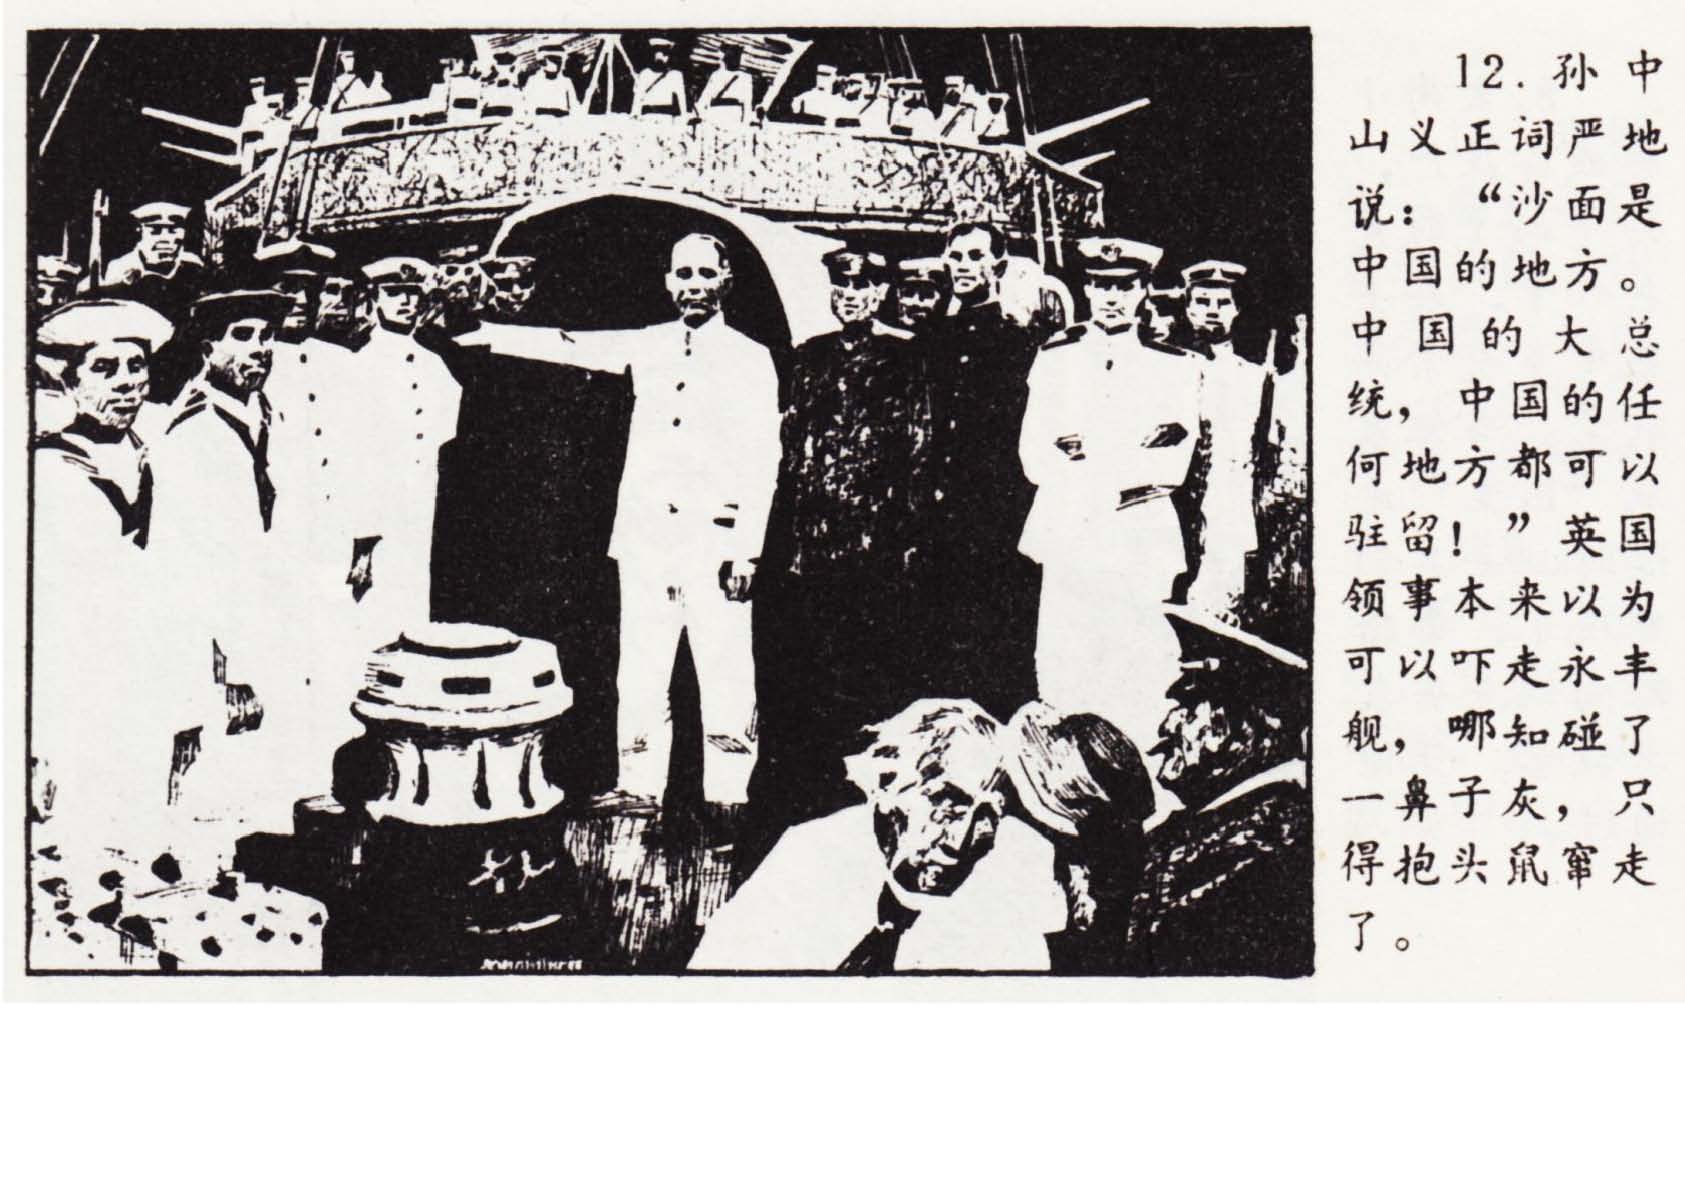 12.孙中
山义正词严地
说：“沙面是
中国的地方。
中国的大总
统，中国的任
何地方都可以
驻留！”英国
领事本来以为
可以吓走永丰
舰，哪知碰了
一鼻子灰，只
得抱头鼠窜走
了。